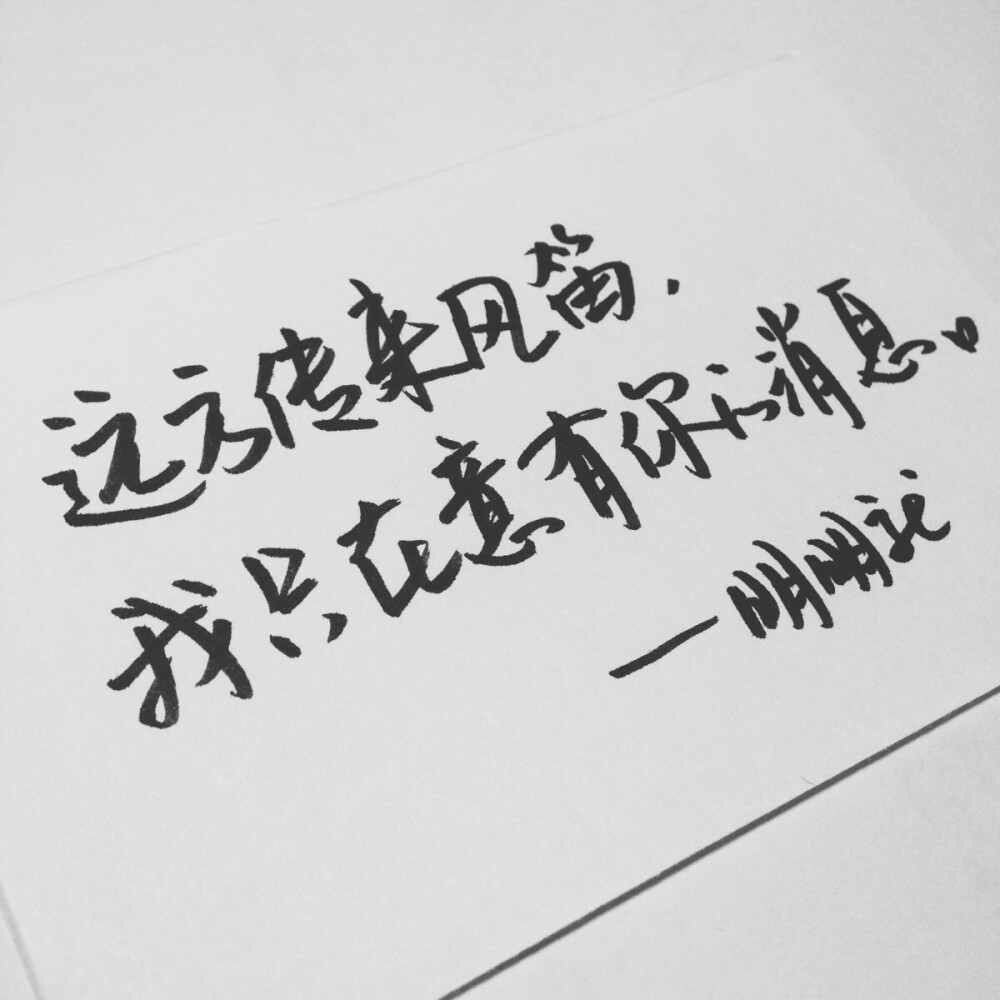 远方传来风笛.
我只在意有你的消息。
—明明就